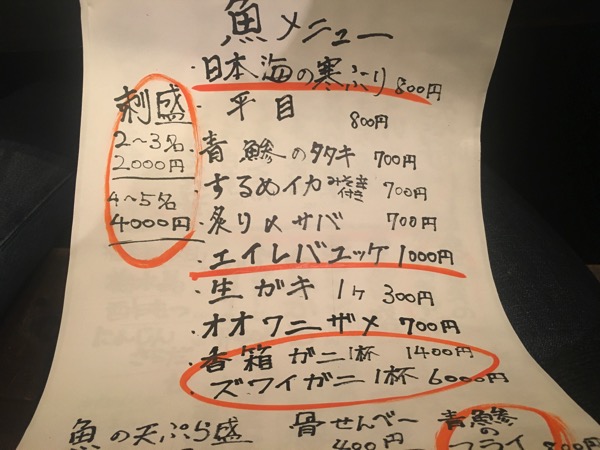 魚メニュー
・日本海の寒ぶり 800円
・平目 800円
・青鯵のタタキ 700円
・するめイカ みそ付き 700円
・炙り〆サバ 700円
・エイレバユッケ 1000円
・生ガキ 1ヶ 300円
・オオワニザメ 700円
・香箱ガニ 1杯 1400円
・ズワイガニ 1杯 6000円
刺盛
2〜3名
2000円
4〜5名
4000円
魚の天ぷら盛
骨せんべー
400円
青鯵
の
フライ 800円